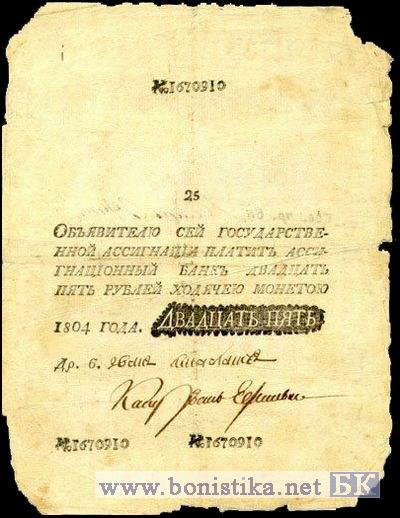 №1670910
25
Объявителю сей государстве-
нной ассигнации платитъ асси-
гнаціонный банкъ двадцать
пять рублей ходячею монетою
1804 года. ДВАДЦАТЬ ПЯТЬ
Др. б. Иванъ
Каси Иванъ
№1670910 №1670910
www.bonistika.net БК